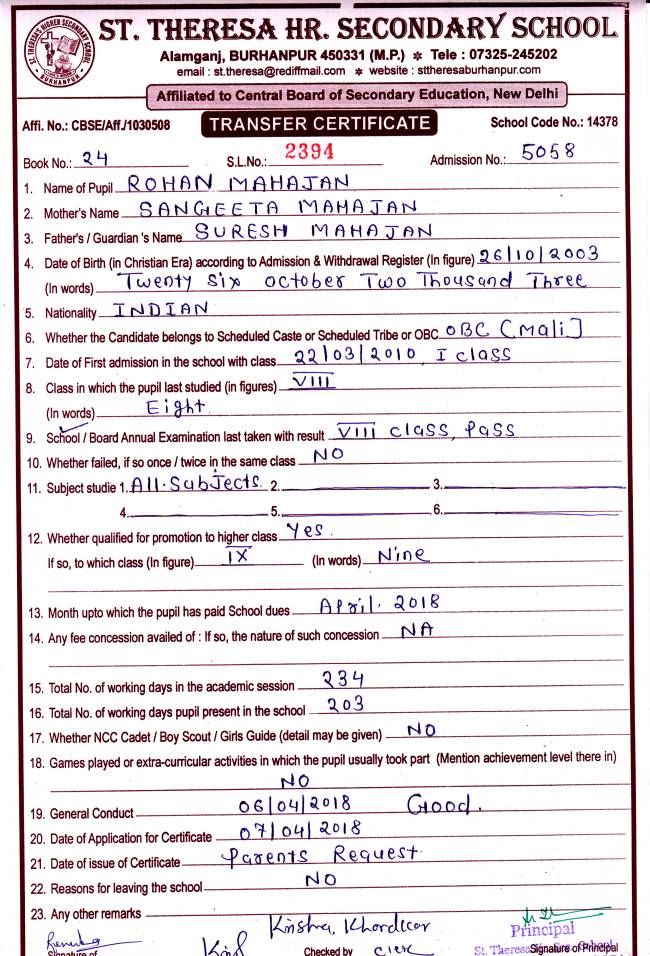 ST. THERESA'S HIGHER SECONDARY SCHOOL
BURHANPUR
ST. THERESA HR. SECONDARY SCHOOL
Alamganj, BURHANPUR 450331 (M.P.) * Tele : 07325-245202
email : st.theresa@rediffmail.com * website : sttheresaburhanpur.com
Affiliated to Central Board of Secondary Education, New Delhi
Affi. No.: CBSE/Aff./1030508 TRANSFER CERTIFICATE School Code No.: 14378
Book No.: 24 S.L.No.: 2394 Admission No.: 5058
1. Name of Pupil ROHAN MAHAJAN
2. Mother's Name SANGEETA MAHAJAN
3. Father's / Guardian 's Name SURESH MAHAJAN
4. Date of Birth (in Christian Era) according to Admission & Withdrawal Register (In figure) 26/10/2003
(In words) Twenty Six October Two Thousand Three
5. Nationality INDIAN
6. Whether the Candidate belongs to Scheduled Caste or Scheduled Tribe or OBC OBC [Mali]
7. Date of First admission in the school with class 22/03/2010, I class
8. Class in which the pupil last studied (in figures) VIII
(In words) Eight
9. School / Board Annual Examination last taken with result VIII class, Pass
10. Whether failed, if so once / twice in the same class NO
11. Subject studie 1. All Subjects 2. 3.
4. 5. 6.
12. Whether qualified for promotion to higher class Yes
If so, to which class (In figure) IX (In words) Nine
13. Month upto which the pupil has paid School dues April. 2018
14. Any fee concession availed of : If so, the nature of such concession NA
15. Total No. of working days in the academic session 234
16. Total No. of working days pupil present in the school 203
17. Whether NCC Cadet / Boy Scout / Girls Guide (detail may be given) NO
18. Games played or extra-curricular activities in which the pupil usually took part (Mention achievement level there in)
NO
19. General Conduct 06/04/2018 Good.
20. Date of Application for Certificate 07/04/2018
21. Date of issue of Certificate Parents Request
22. Reasons for leaving the school NO
23. Any other remarks
Principal
Signature of Checked by Clerk St. Theresa Signature of Principal